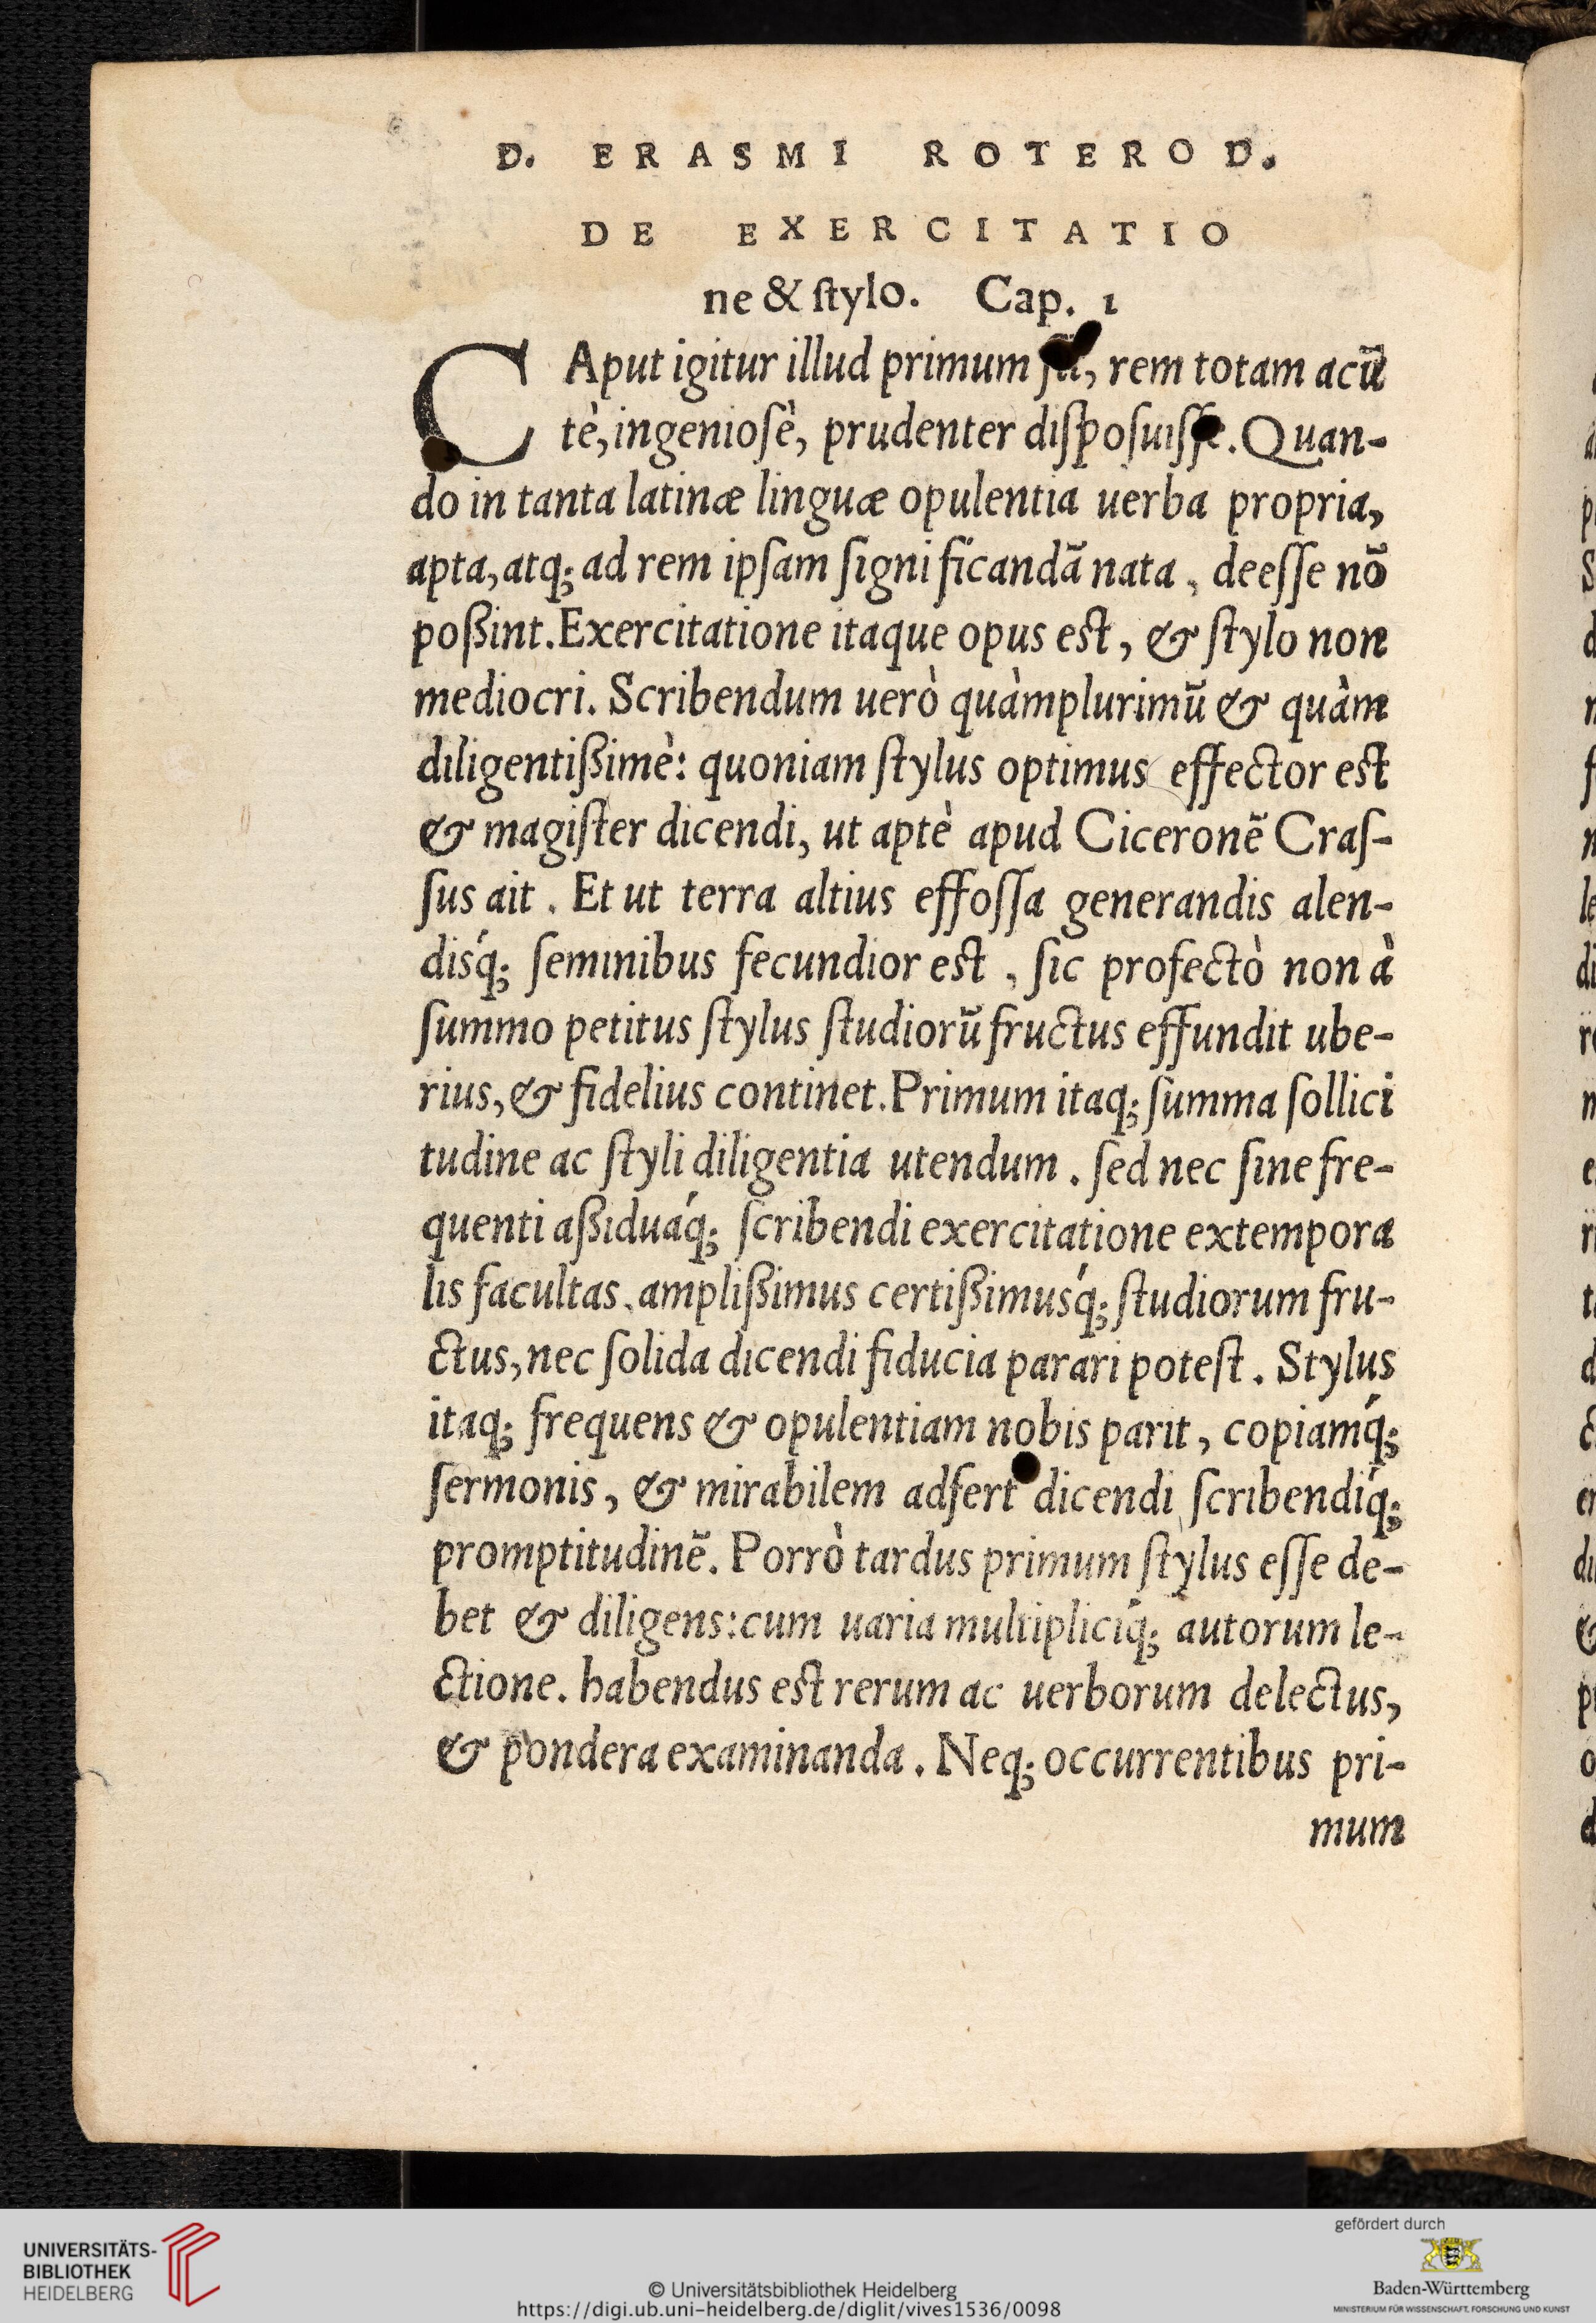 D. ERASMI ROTEROD.
DE EXERCITATIO
ne & ſtylo. Cap. 1
CAput igitur illud primum ſit, rem totam acū
tè, ingenioſè, prudenter diſpoſuiſſe. Quan-
do in tanta latinæ linguæ opulentia uerba propria,
apta, atq; ad rem ipſam ſignificandā nata, deeſſe nō
poßint. Exercitatione itaque opus eſt, & ſtylo non
mediocri. Scribendum uerò quàmplurimū & quàm
diligentißimè: quoniam ſtylus optimus effector eſt
& magiſter dicendi, ut aptè apud Ciceronē Craſ-
ſus ait. Et ut terra altius effoſſa generandis alen-
disq́; ſeminibus fecundior eſt, ſic profectò non à
ſummo petitus ſtylus ſtudiorū fructus effundit ube-
rius, & fidelius continet. Primum itaq; ſumma ſollici
tudine ac ſtyli diligentia utendum. ſed nec ſine fre-
quenti aßiduáq; ſcribendi exercitatione extempora
lis facultas, amplißimus certißimusq́; ſtudiorum fru-
ctus, nec ſolida dicendi fiducia parari poteſt. Stylus
itaq; frequens & opulentiam nobis parit, copiamq́;
ſermonis, & mirabilem adfert dicendi ſcribendiq́;
promptitudinē. Porrò tardus primum ſtylus eſſe de-
bet & diligens: cum uaria multipliciq́; autorum le-
ctione. habendus eſt rerum ac uerborum delectus,
& pondera examinanda. Neq; occurrentibus pri-
mum
UNIVERSITÄTS-
BIBLIOTHEK
HEIDELBERG
© Universitätsbibliothek Heidelberg
https://digi.ub.uni-heidelberg.de/diglit/vives1536/0098
gefördert durch
Baden-Württemberg
MINISTERIUM FÜR WISSENSCHAFT, FORSCHUNG UND KUNST